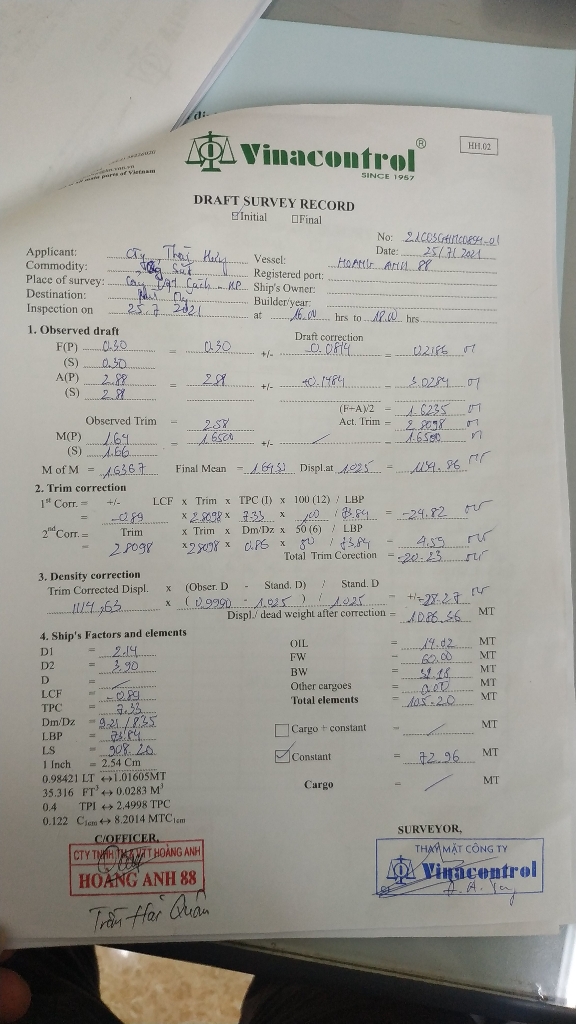 of all main ports of Vietnam
Vinacontrol ®
SINCE 1957
HH.02
DRAFT SURVEY RECORD
☑Initial ☐Final
No:
Date: 25/7/2021
Applicant: Cty Thái Hưng
Vessel: HOANG ANH 88
Commodity:
Registered port:
Place of survey:
Ship's Owner:
Destination:
Builder/year:
Inspection on 25.7.2021 at 16.00 hrs to 18.00 hrs
1. Observed draft
Draft correction
F(P) 0.30 = 0.30 +/- -0.0814 = 0.2186 m
(S) 0.30
A(P) 2.88 = 2.88 +/- +0.1484 = 3.0284 m
(S) 2.88
(F+A)/2 = 1.6235 m
Observed Trim = 2.58 Act. Trim = 2.8098 m
M(P) 1.64 = 1.6500 +/- / = 1.6500 m
(S) 1.66
M of M = 1.6367 Final Mean = 1.6433 Displ.at 1.025 = 1134.86 MT
2. Trim correction
1st Corr. = +/- LCF x Trim x TPC (I) x 100 (12) / LBP
= -0.89 x 2.8098 x 7.33 x 100 / 73.84 = -24.82 MT
2nd Corr. = Trim x Trim x Dm/Dz x 50 (6) / LBP
= 2.8098 x 2.8098 x 0.86 x 50 / 73.84 = 4.59 MT
Total Trim Corection = -20.23 MT
3. Density correction
Trim Corrected Displ. x (Obser. D - Stand. D) / Stand. D
1114,63 x ( 0.9990 - 1.025 ) / 1.025 = +/- -28.27 MT
Displ./ dead weight after correction = 1086.36 MT
4. Ship's Factors and elements
D1 = 2.14
D2 = 3.90
D = /
LCF = -0.89
TPC = 7.33
Dm/Dz = 9.21 / 8.35
LBP = 73.84
LS = 908.20
1 Inch = 2.54 Cm
0.98421 LT ↔1.01605MT
35.316 FT³ ↔0.0283 M³
0.4 TPI ↔2.4998 TPC
0.122 C1cm ↔8.2014 MTC1cm
OIL = 14.02 MT
FW = 60.00 MT
BW = 31.18 MT
Other cargoes = 0.00 MT
Total elements = 105.20 MT
☐ Cargo + constant = / MT
☑ Constant = 72.96 MT
Cargo = / MT
C/OFFICER,
SURVEYOR,
HOÀNG ANH 88
Trần Hải Quân
THAY MẶT CÔNG TY
Vinacontrol